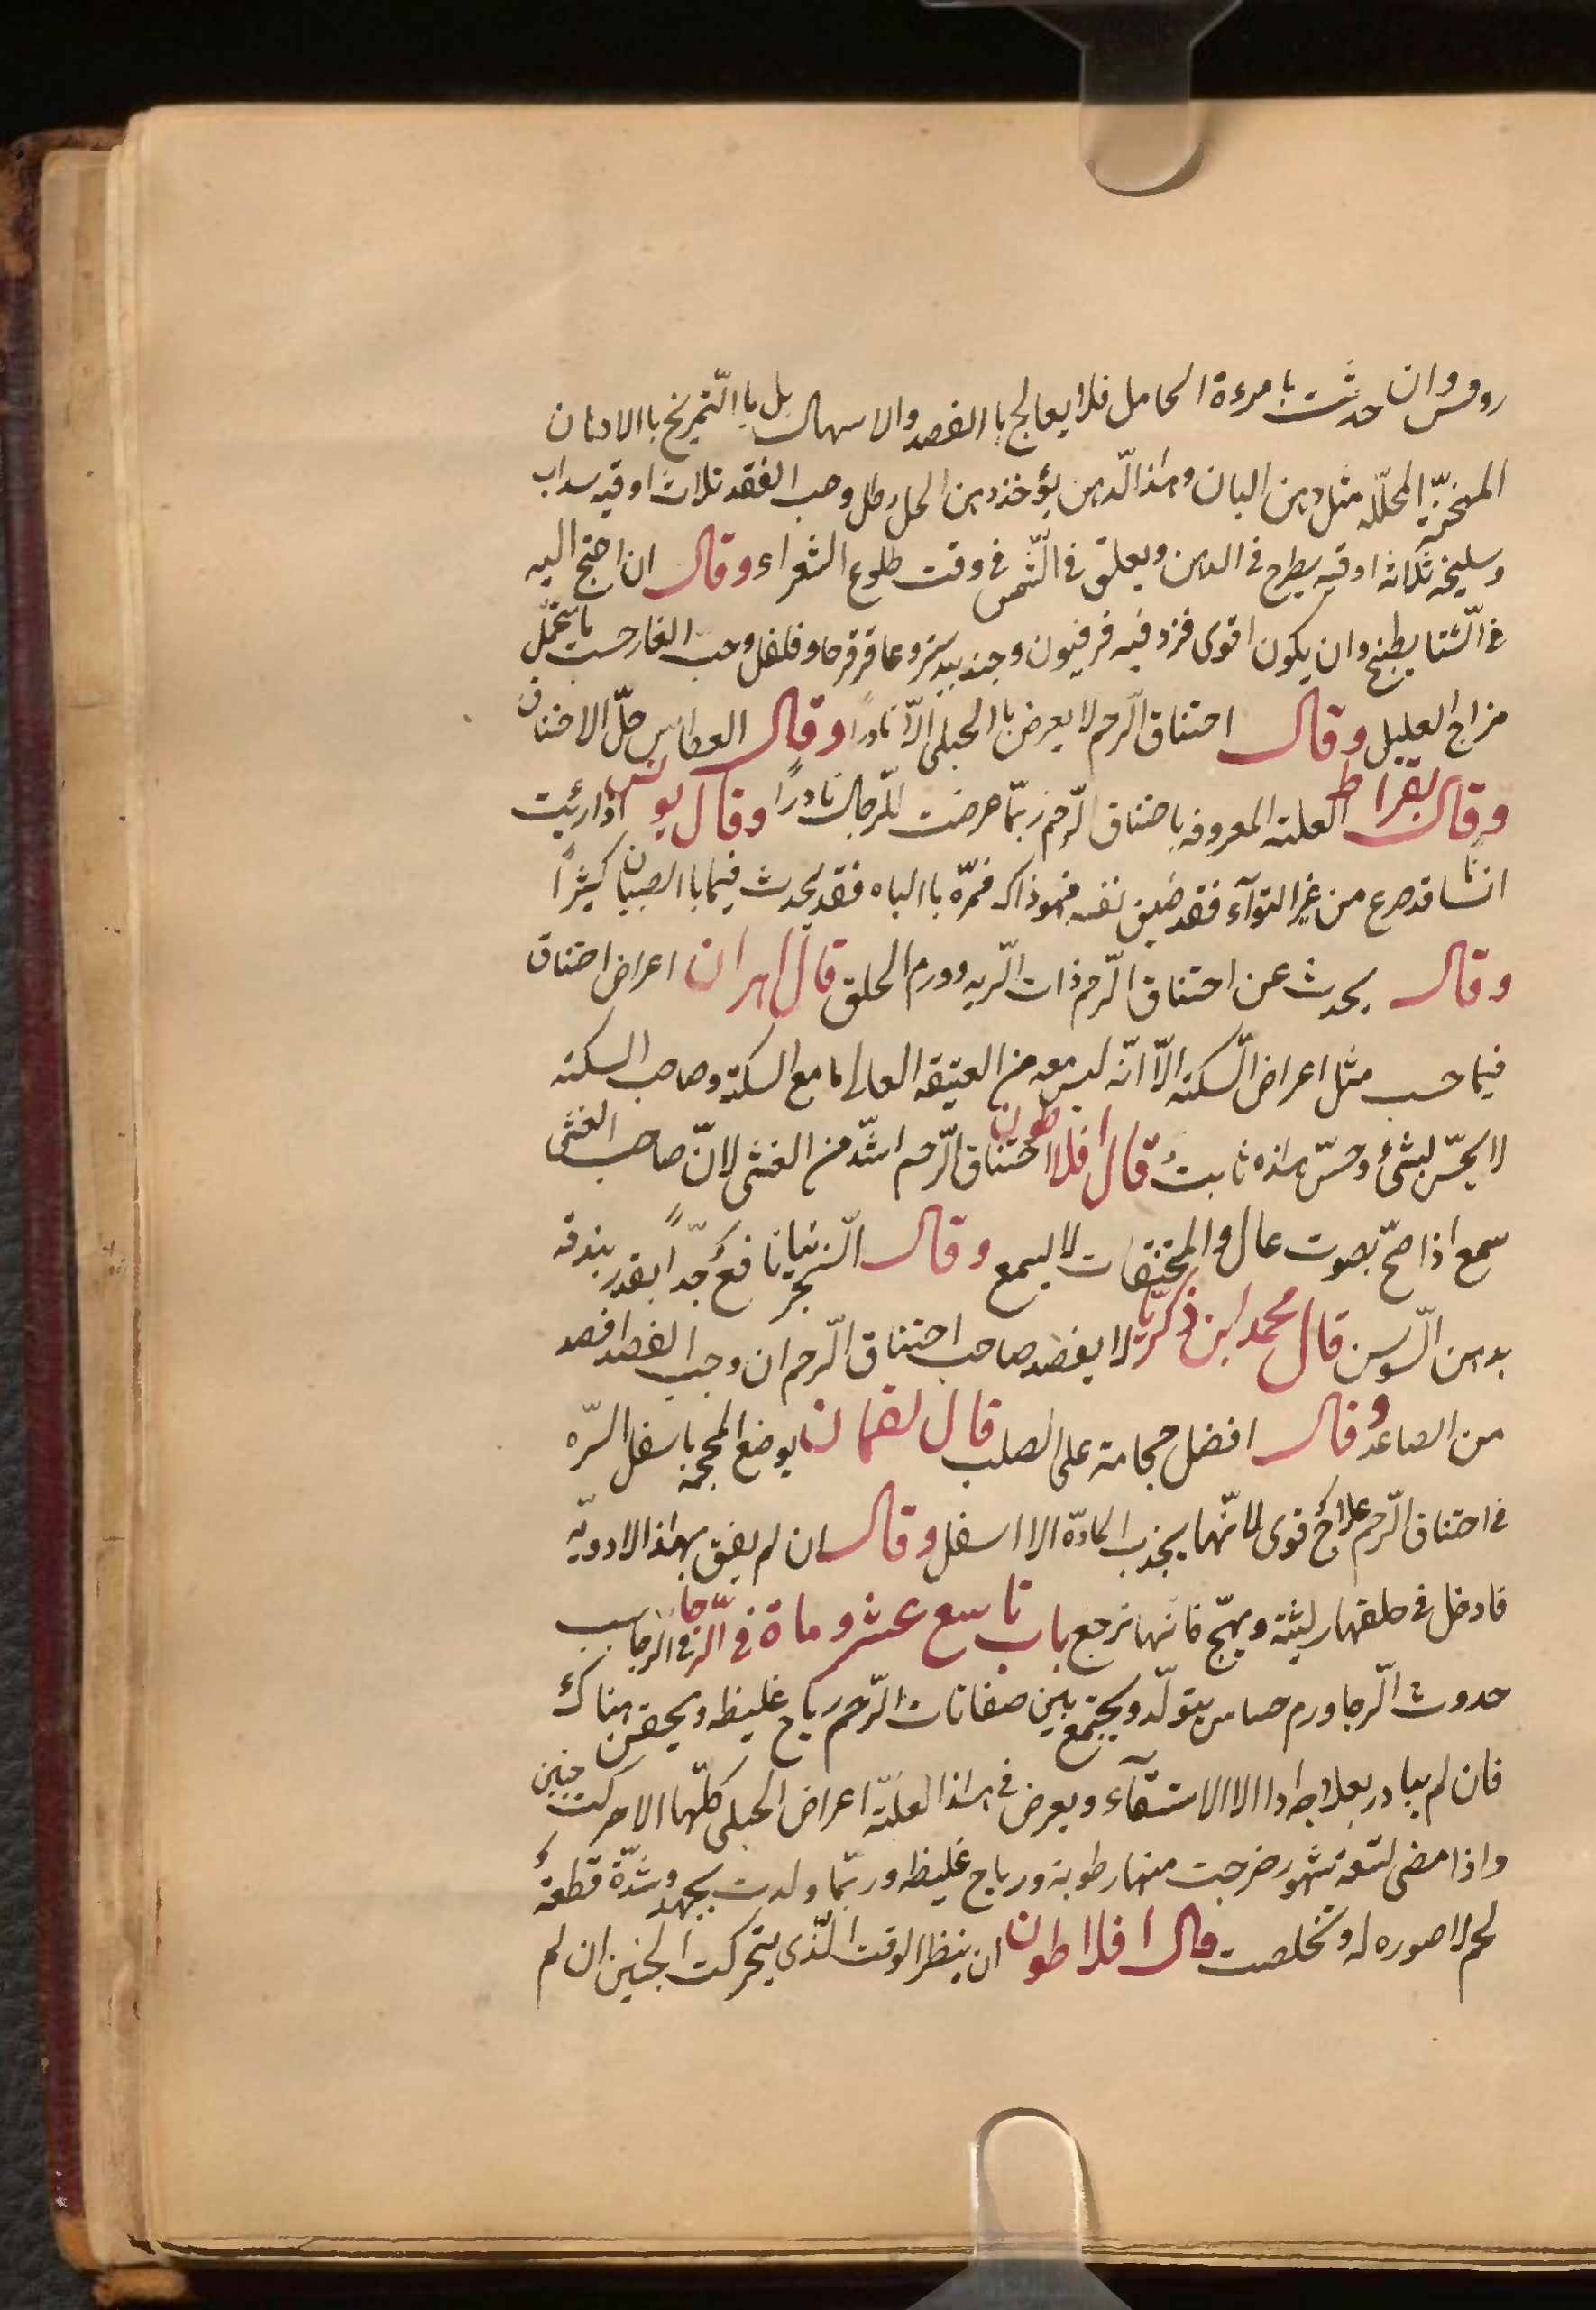 روفس وان حدثت بامرءة الحامل فلا يعالج باالفصد والاسهال بل باالتّمريخ باالادهان
المسخنّة المحلّله مثل دهن البان وهذا الّدهن يؤخذ دهن الحل رطل وحب الفقد ثلاث اوقيه سداب
وسليخه ثلاثه اوقيه يطرح فى الدهن ويعلق فى الّشمس فى وقت طلوع الشعراء وقال ان احتج اليه
فى الّشتا يطبخ وان يكون اقوى فزد فيه فرفيون وجندبيدستر وعاقرقرحا وفلفل وحب الغار حسب ما يتحمّل
مزاج العليل وقال احتناق الّرحم لا يعرض باالحبلى الّا نادرًا وقال العطاس حلّ الاختناق
وقال بقراط العلته المعروفه باختناق الّرحم ربّما عرضت للّرجال نادرًا وقال يونس اذا رئيت
انسانًا قد صرع من غير التوآء فقد ضيق نفسه فهو ذاك فمرّه باالباه فقد يحدث فيما باالصبيان كثيرًا
وقال يحدث عن احتناق الّرحم ذات الّريه وورم الحلق قال اهران اعراض احتناق
فيما حسب مثل اعراض الّسكته الّا انّه ليس معه من العتيقه العالى ما مع السكتة وصاحب السكته
لا يحسّ بشئ وحسّ هذه ثابتٌ قال افلاطون احتناق الّرحم اشدّ من الغشى لانّ صاحب الغشى
سمع اذا صحّ بصوت عال والمختنقات لا ليسمع وقال الّشجرنيا نافعٌ جّدًا بقدر بندقه
بدهن الّسوسن قال محمد ابن ذكريّا لا يفصد صاحب احتناق الّرحم ان وجب الفصد افصد
من الصاعد وقال افضل حجامة على الصلب قال لقمان يوضع المحجمة باسفل السّره
فى احتناق الّرحم علاجٌ قوى لانّها يجذب المادّة الا اسفل وقال ان لم يفق بهذا الادويّه
فادخل فى حلقها ريشة ويهيّج فانّها ترجع باب تاسع عشر وماة فى الّرجا فى الرجا سبب
حدوث الّرجا ورم حساس يتولّد ويجتمع بين صفاقات الّرحم رياح غليظه ويحقن هناك
فان لم يبادر بعلاجه ادا الا الاستقآء ويعرض فى هذا العلتّه اعراض الحبلى كلّها الا حركت جنين
واذا مضى لتسعة شهور خرجت منها رطوبة ورياح غليظه وربّما ولدت بجهدٍ وشدّة قطعةٌ
لحم لا صوره له وتخلصت قال افلاطون ان ينظر الوقت الّذى يتحركت الجنين ان لم